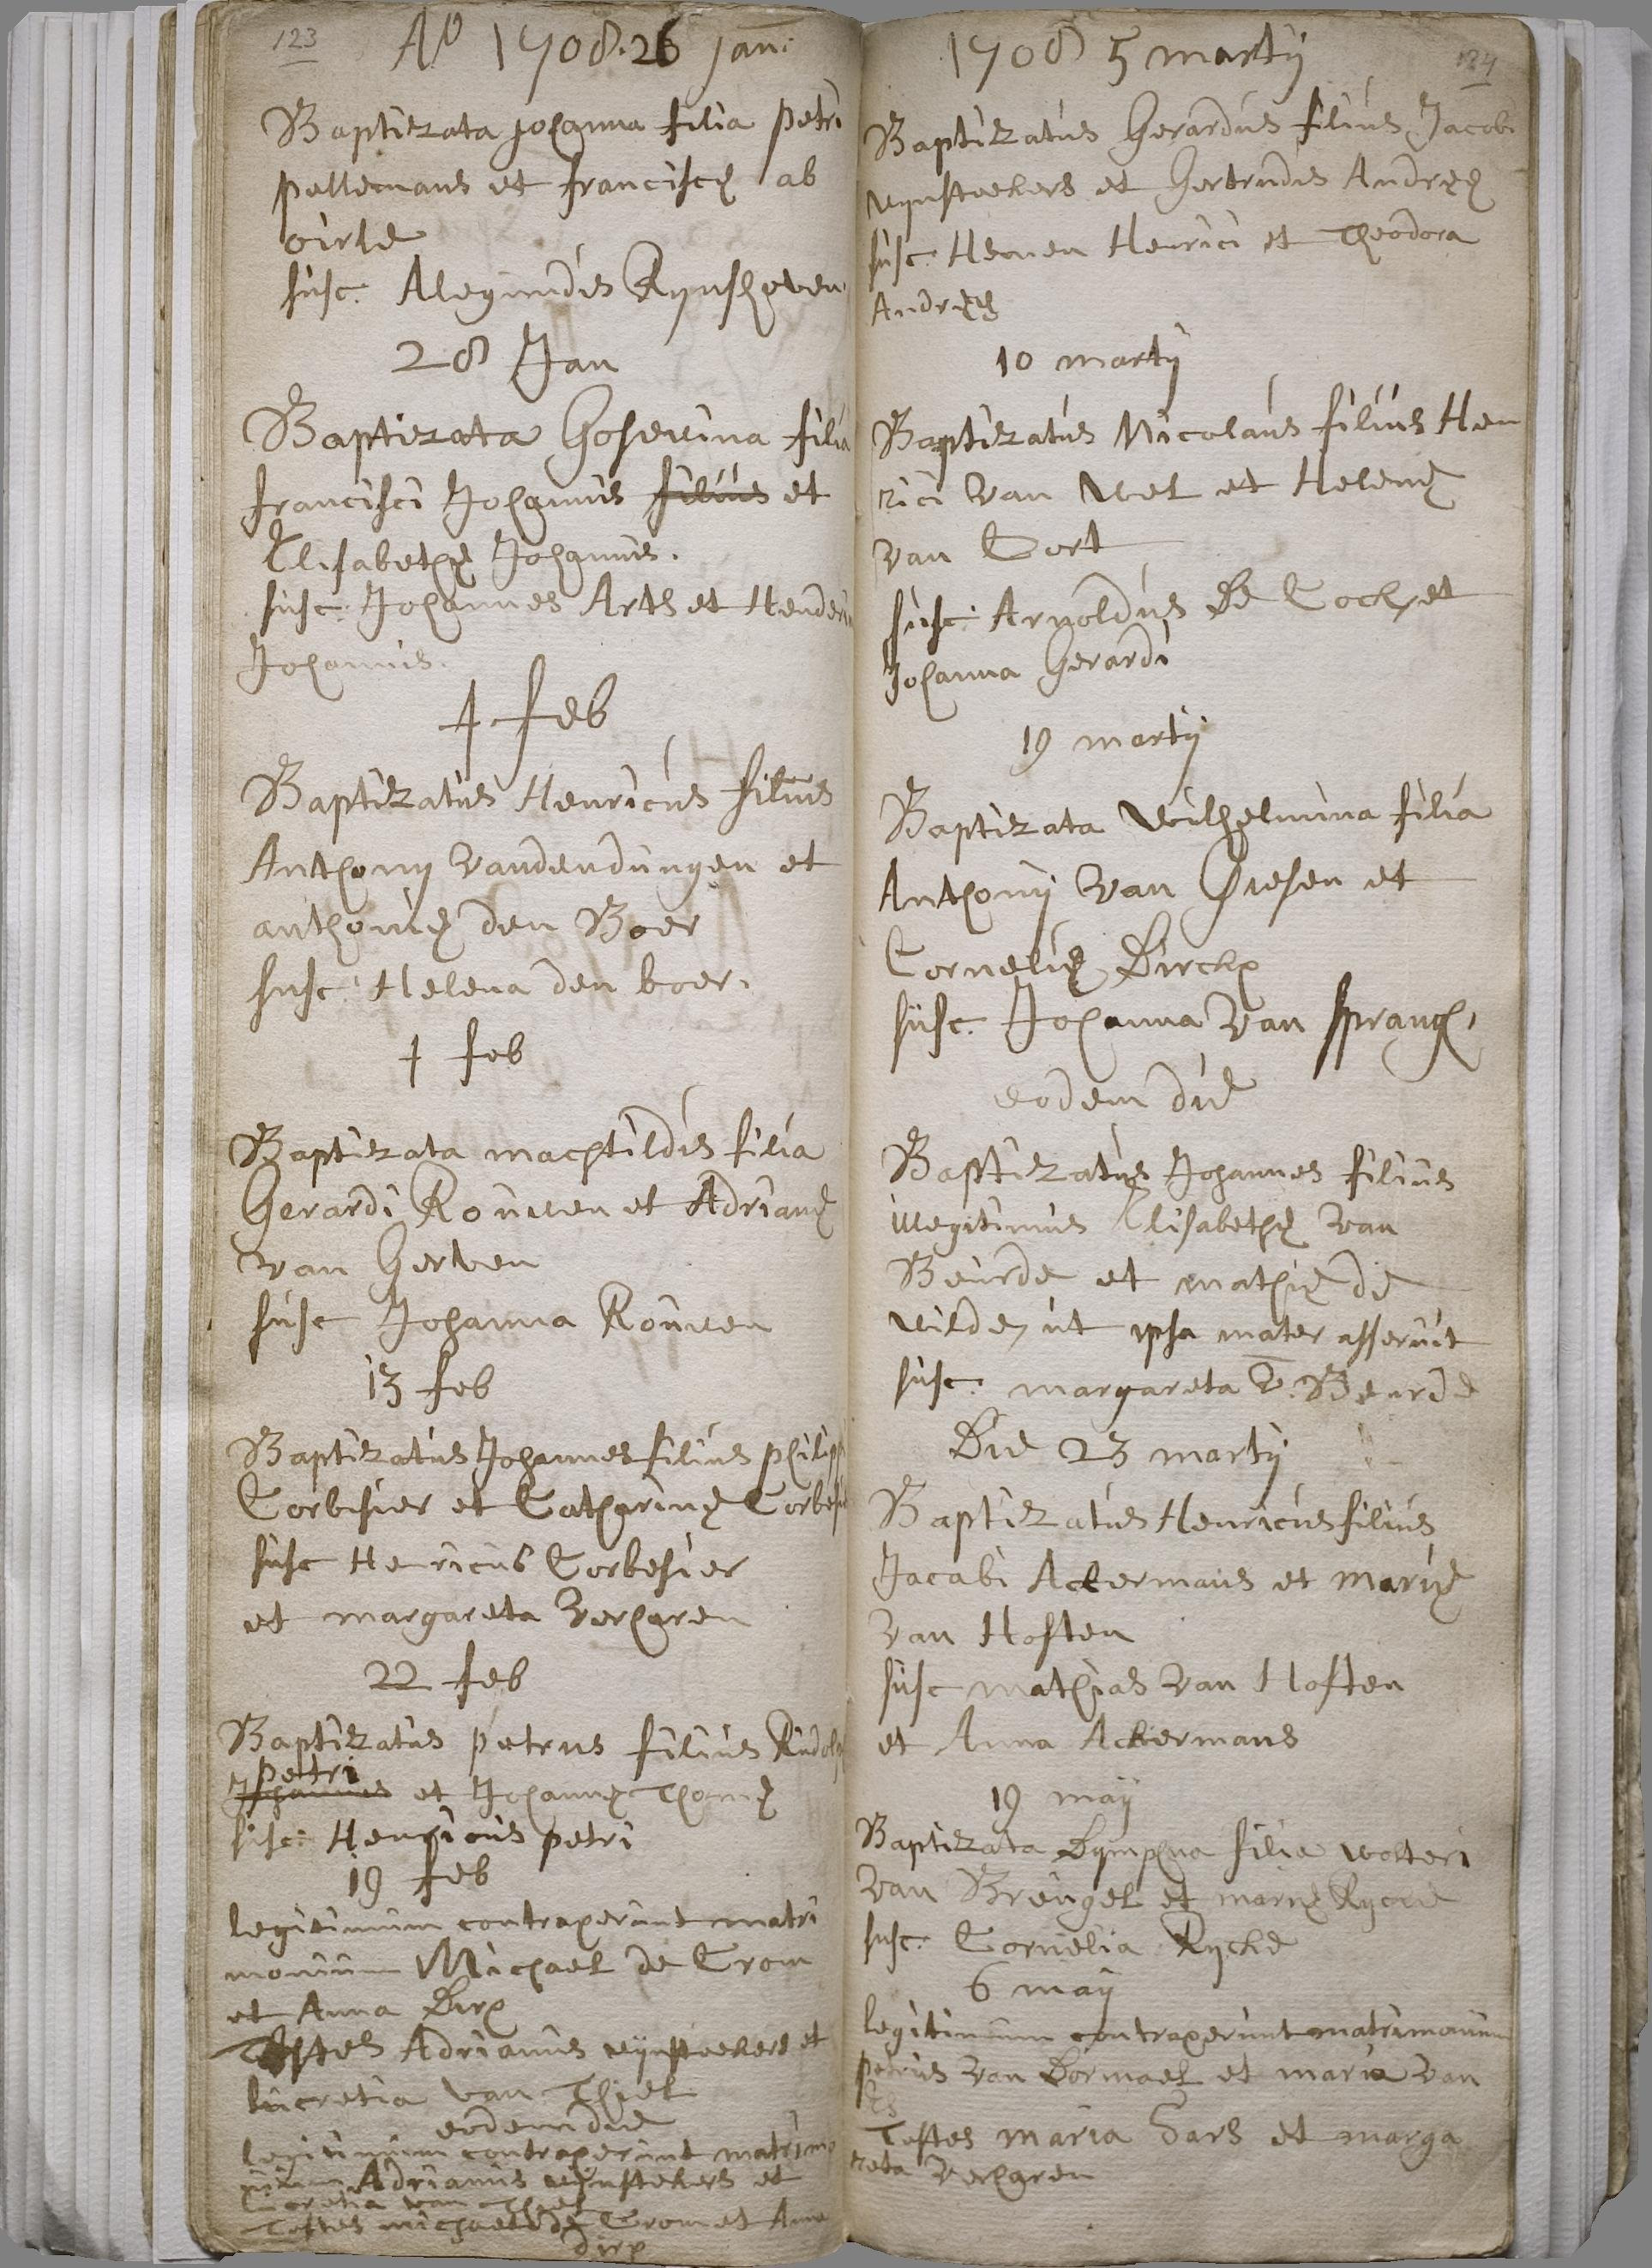 123
Ao 1708. 26 jan:
Baptizata johanna filia petri
pellemans et francisce ab
oirle
susc. Alegundis Rynshoven
28 Jan
Baptizata Goswina filia
francisci Johannis filius et
Elisabethe Johannis.
susc: Johannes Arts et Henderin
Johannis.
4 feb
Baptizatus Henricus filius
Anthony vandendungen et
anthonie den Boer
susc: Helena den boer.
4 feb
Baptizata machtildis filia
Gerardi Rouwen et Adriane
van Gerven
susc Johanna Rouwen
13 feb
Baptizatus Johannes filius philippi
Corbisier et Catharine Corbesi
susc Henricus Corbesier
et margareta verharen
22 feb
Baptizatus petrus filius Rudolphi
petri
Johannis et Johanne Thome
susc: Henricus petri
19 feb
legitimum contraxerunt matri
monium Michael de Crom
et Anna Dirx
Testes Adrianus wynstekers et
lucretia van Thiel
eodem die
legitimum contraxerunt matrimo
nium Adrianus wynstekers et
lucretia van Thiel
Testes michael de Crom et Anna
dirx
1708 5 martij
124
Baptizatus Gerardus filius Jacobi
wynstekers et Gertrudis Andree
susc: Hemen Henrici et Theodora
Andree
10 martij
Baptizatus Nicolaus filius Hen
rici van Wel et Helene
van Gort
susc: Arnoldus De Cock et
Johanna Gerardi
19 martij
Baptizata Wilhelmina filia
Anthonij van Diesen et
Cornelie Dirckx
susc. Johanna van sprang,
eodem die
Baptizatus Johannes filius
illegitimus Elisabethe van
Beurde et mathie de
wilde, ut ipsa mater asseruit
susc: margareta V. Beurde
Die 23 martij
Baptizatus Henricus filius
Jacabi Ackermans et marie
van Hoften
susc mathias van Hoften
et Anna Ackermans
19 maij
Baptizata Dympna filia wolteri
van Breugel et marie Rycke
susc: Cornelia Rycke
6 maij
legitimum contraxerunt matrimonium
petrus van Dormael et maria van
Es
Testes maria Sars et marga
reta verharen